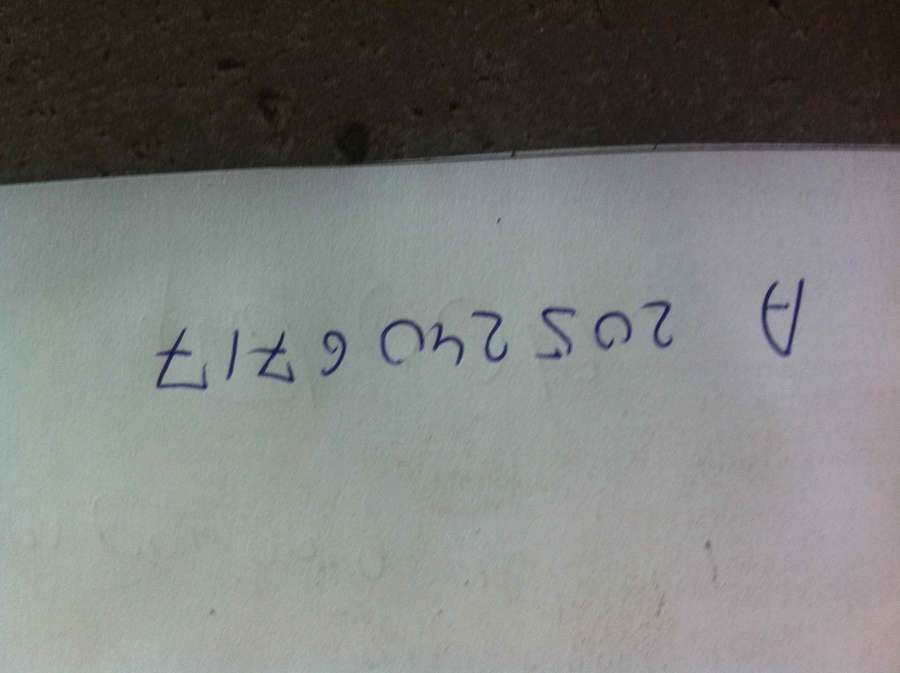 A 205 240 6717